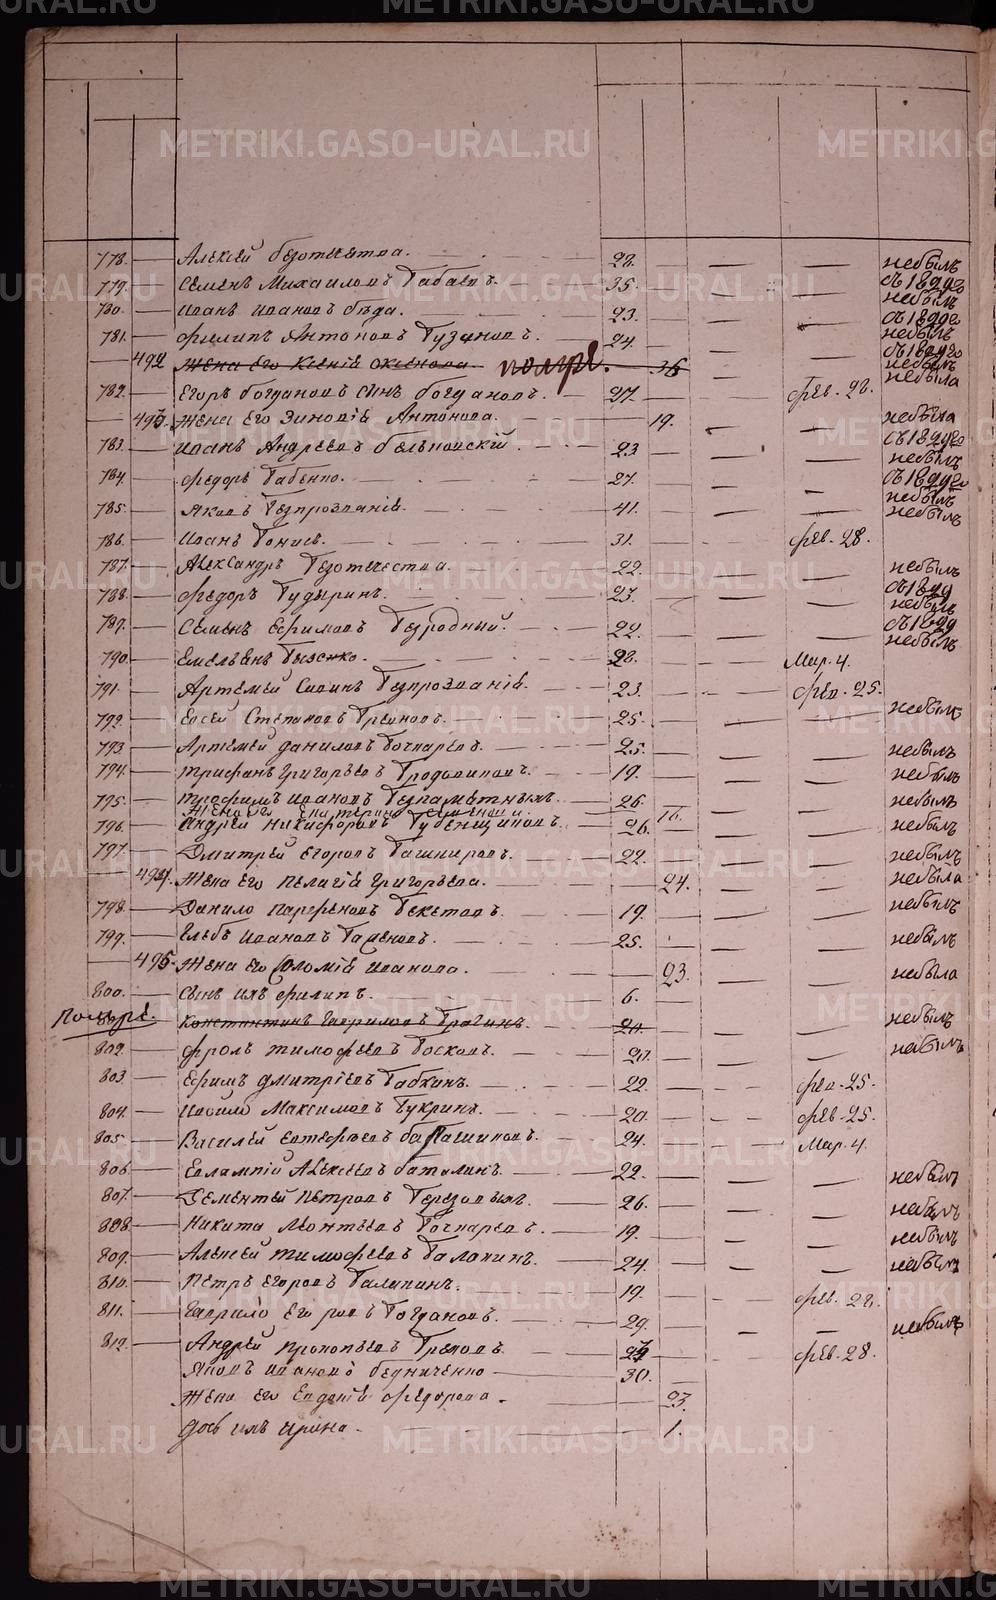 METRIKI.GASO-URAL.RU
778. Алексей безотечества. 28. — — небылъ
779. Семенъ Михаиловъ Бабаевъ. 35. — — съ 1829го небылъ
780. Иванъ Ивановъ бѣда. 23. — — съ 1829го небылъ
781. Филипъ Антоновъ 24. — — съ 1829го небылъ
492 Жена его Ксенія помре. 36 — — небыла
782. Егоръ богдановъ сынъ богдановъ. 27. — фев. 28.
493. Жена его Зиновіе Антонова. 19. — — небыла
783. Иванъ Андреевъ 23 — — съ 1829го небылъ
784. Федоръ Бабенко. 27. — — съ 1829го небылъ
785. Яковъ безпрозванія. 41. — — небылъ
786. Иванъ 31. — фев. 28.
787. Александръ безотечества. 22. — — небылъ
788. Федоръ 27. — — съ 1829 небылъ
789. Семенъ Ефимовъ безродный. 22. — — съ 1829 небылъ
790. Емельянъ 28. — Мар. 4.
791. Артемей Савинъ безпрозванія. 23. — фев. 25.
792. Евсей Степановъ 25. — — небылъ
793. Артемей даниловъ бочкаревъ. 25. — — небылъ
794. трифанъ григорьевъ бродовиковъ. 19. — — небылъ
795. трофимъ Ивановъ безпамятныхъ. 26. — — небылъ
Жена его екатерина 
796. Андрей Никифоровъ бубенщиковъ. 26. — — небылъ
797. Дмитрей Егоровъ башкировъ. 22. — — небылъ
494. Жена его Пелагія григорьева. 24. — — небыла
798. Данило Парфеновъ бекетовъ. 19. — — небылъ
799. Глебъ Ивановъ 25. — — небылъ
495. Жена его Соломія Иванова. 23. — — небыла
800. сынъ ихъ филипъ. 6. — —
помре. Константинъ гавриловъ 20. — — небылъ
802. фролъ тимофеевъ босковъ. — — небылъ
803. Ефимъ дмитріевъ бабкинъ. 22. — фев. 25.
804. Максимовъ букринъ. 20. — фев. 25.
805. Василей 24. — Мар. 4.
806. Евлампій Алексеевъ баталинъ. 22. — — небылъ
807. Дементей Петровъ березовыхъ. 26. — — небылъ
808. Никита Леонтьевъ бочкаревъ. 19. — — небылъ
809. Алексей тимофеевъ балакинъ. 24. — — небылъ
810. Петръ Егоровъ балакинъ. 19. — фев. 28.
811. гаврило Егоровъ богдановъ. 29. — — небылъ
812. Андрей Прокопьевъ — фев. 28.
Яковъ Ивановъ 30. —
Жена его Евдокія федорова. 23.
дочь ихъ ирина. 1.